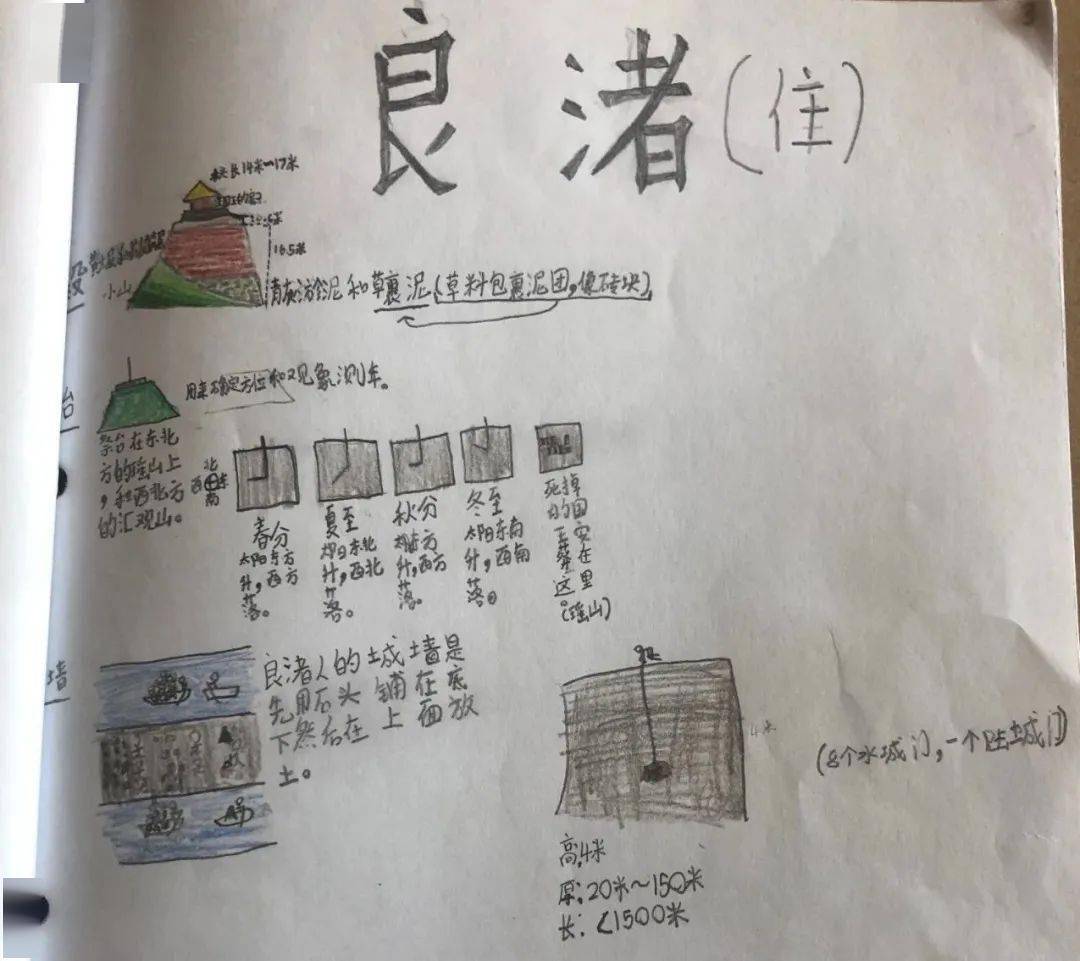 良渚(住)
长14米～17米
16.5米
小山
青灰淤泥和草裹泥(草料包裹泥团,像砖块)
台
用来确定方位和观象测年。
祭台在东北
方的瑶山上
,和西北方
的汇观山。
北
西 东
南
春分
太阳东方
升,西方
落。
夏至
太阳东北
升,西北
落。
秋分
升,西方
落。
冬至
太阳东南
升,西南
落。
死掉
的国
王安
葬在
这里
。
(瑶山)
墙
良渚人的城墙是
先用石头铺在底
下然后在上面放
土。
4米
(8个水城门,一个陆城门)
高:4米
厚:20米～150米
长:<1500米